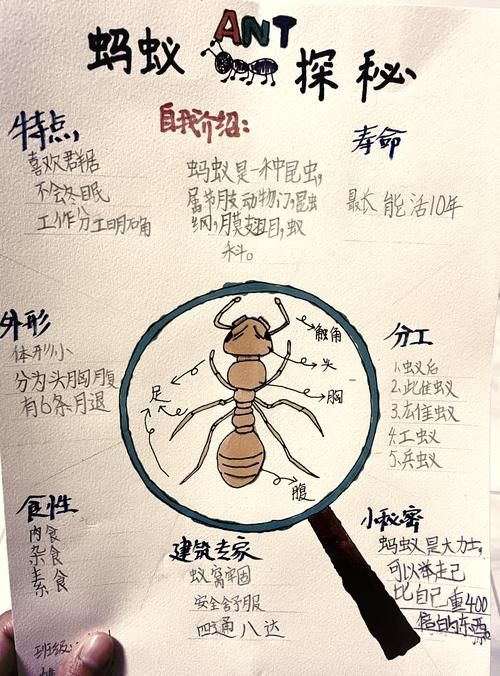 ANT
蚂蚁 探秘
特点
喜欢群居
不会冬眠
工作分工明确
自我介绍:
蚂蚁是一种昆虫,
属节肢动物门,昆虫
纲,膜翅目,蚁
科。
寿命
最长能活10年
外形
体形小
分为头胸腹
有6条月退
触角
头
胸
足
腹
分工
1.蚁后
2.雌蚁
3.雄蚁
4.工蚁
5.兵蚁
食性
肉食
杂食
素食
建筑专家
蚁窝牢固
安全舒服
四通八达
小秘密
蚂蚁是大力士,
可以举走己
比自己重400
倍的东西。
班级: